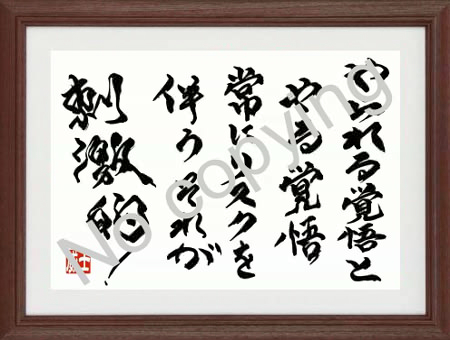 やられる覚悟と
やる覚悟
常にリスクを
伴うそれが
刺激的!
No copying